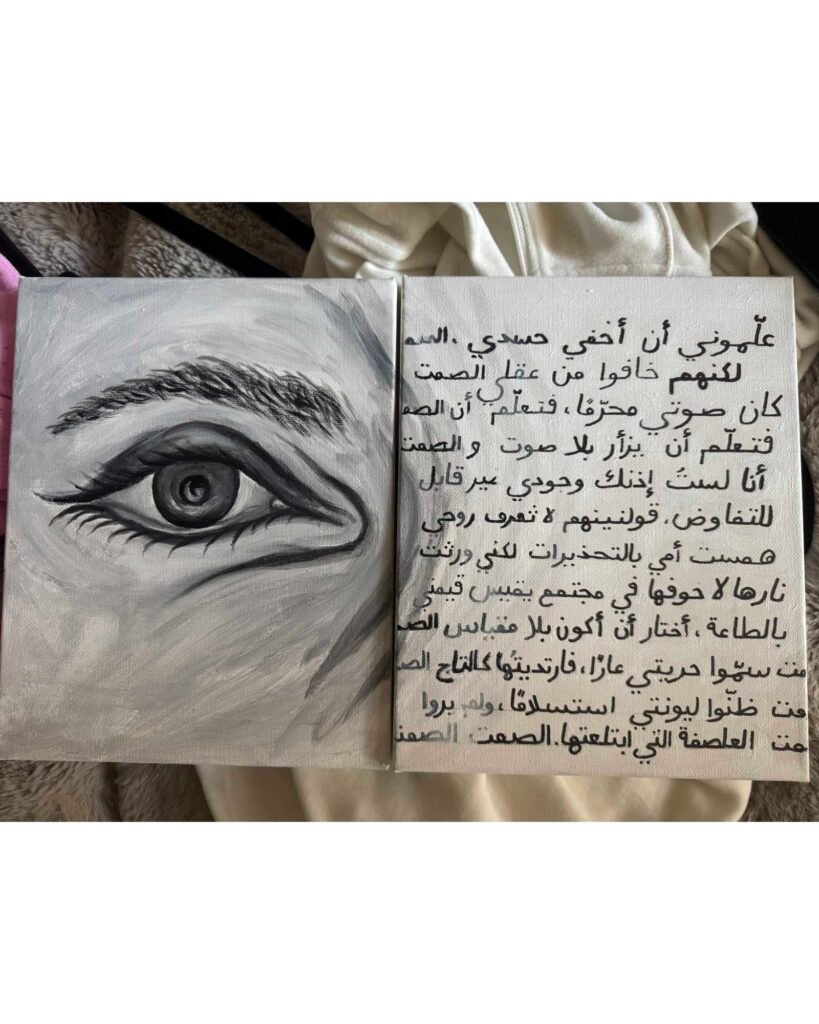 علّموني أن أخفي حسدي ،الصم
لكنهم خافوا من عقلي الصمت
كان صوتي محرّمًا، فتعلّم أن الصم
فتعلّم أن يزأر بلا صوت و الصمت
أنا لستُ إذنك وجودي غير قابل
للتفاوض، قولنينهم لا تعرف روحي
همست أمي بالتحذيرات لكني ورثت
نارها لا حوفها في مجتمع يقيس قيمتي
بالطاعة ، أختار أن أكون بلا مقياس الصم
مت سمّوا حريتي عارًا، فارتديتُها كالتاج الصم
مت ظنّوا ليونتي استسلامًا ، ولم يروا
مت العلصفة التي ابتلعتها. الصمت الصمت